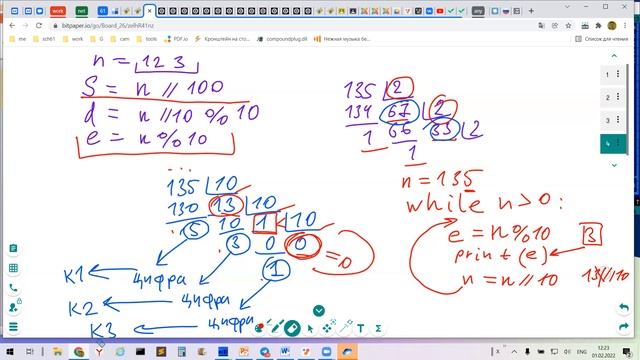 bitpaper.io/go/Board_26/zelhR41nz
Приложения
work
sch61
G
cam
tools
PDF.io
Кронштейн на сто...
compoundplug.dll
Нежная музыка бе...
Список для чтения
n = 123
S = n // 100
d = n // 10 % 10
e = n % 10
135 2
134 67 2
1 66 33 2
1
...
135 10
130 13 10
5 10 1 10
3 0 0 = 0
1
К1 ← цифра
К2 ← цифра
К3 ← цифра
n = 135
while n > 0:
e = n % 10
print (e)
n = n // 10
13 // 10
1
2
3
4
ENG
12:23
01.02.2022